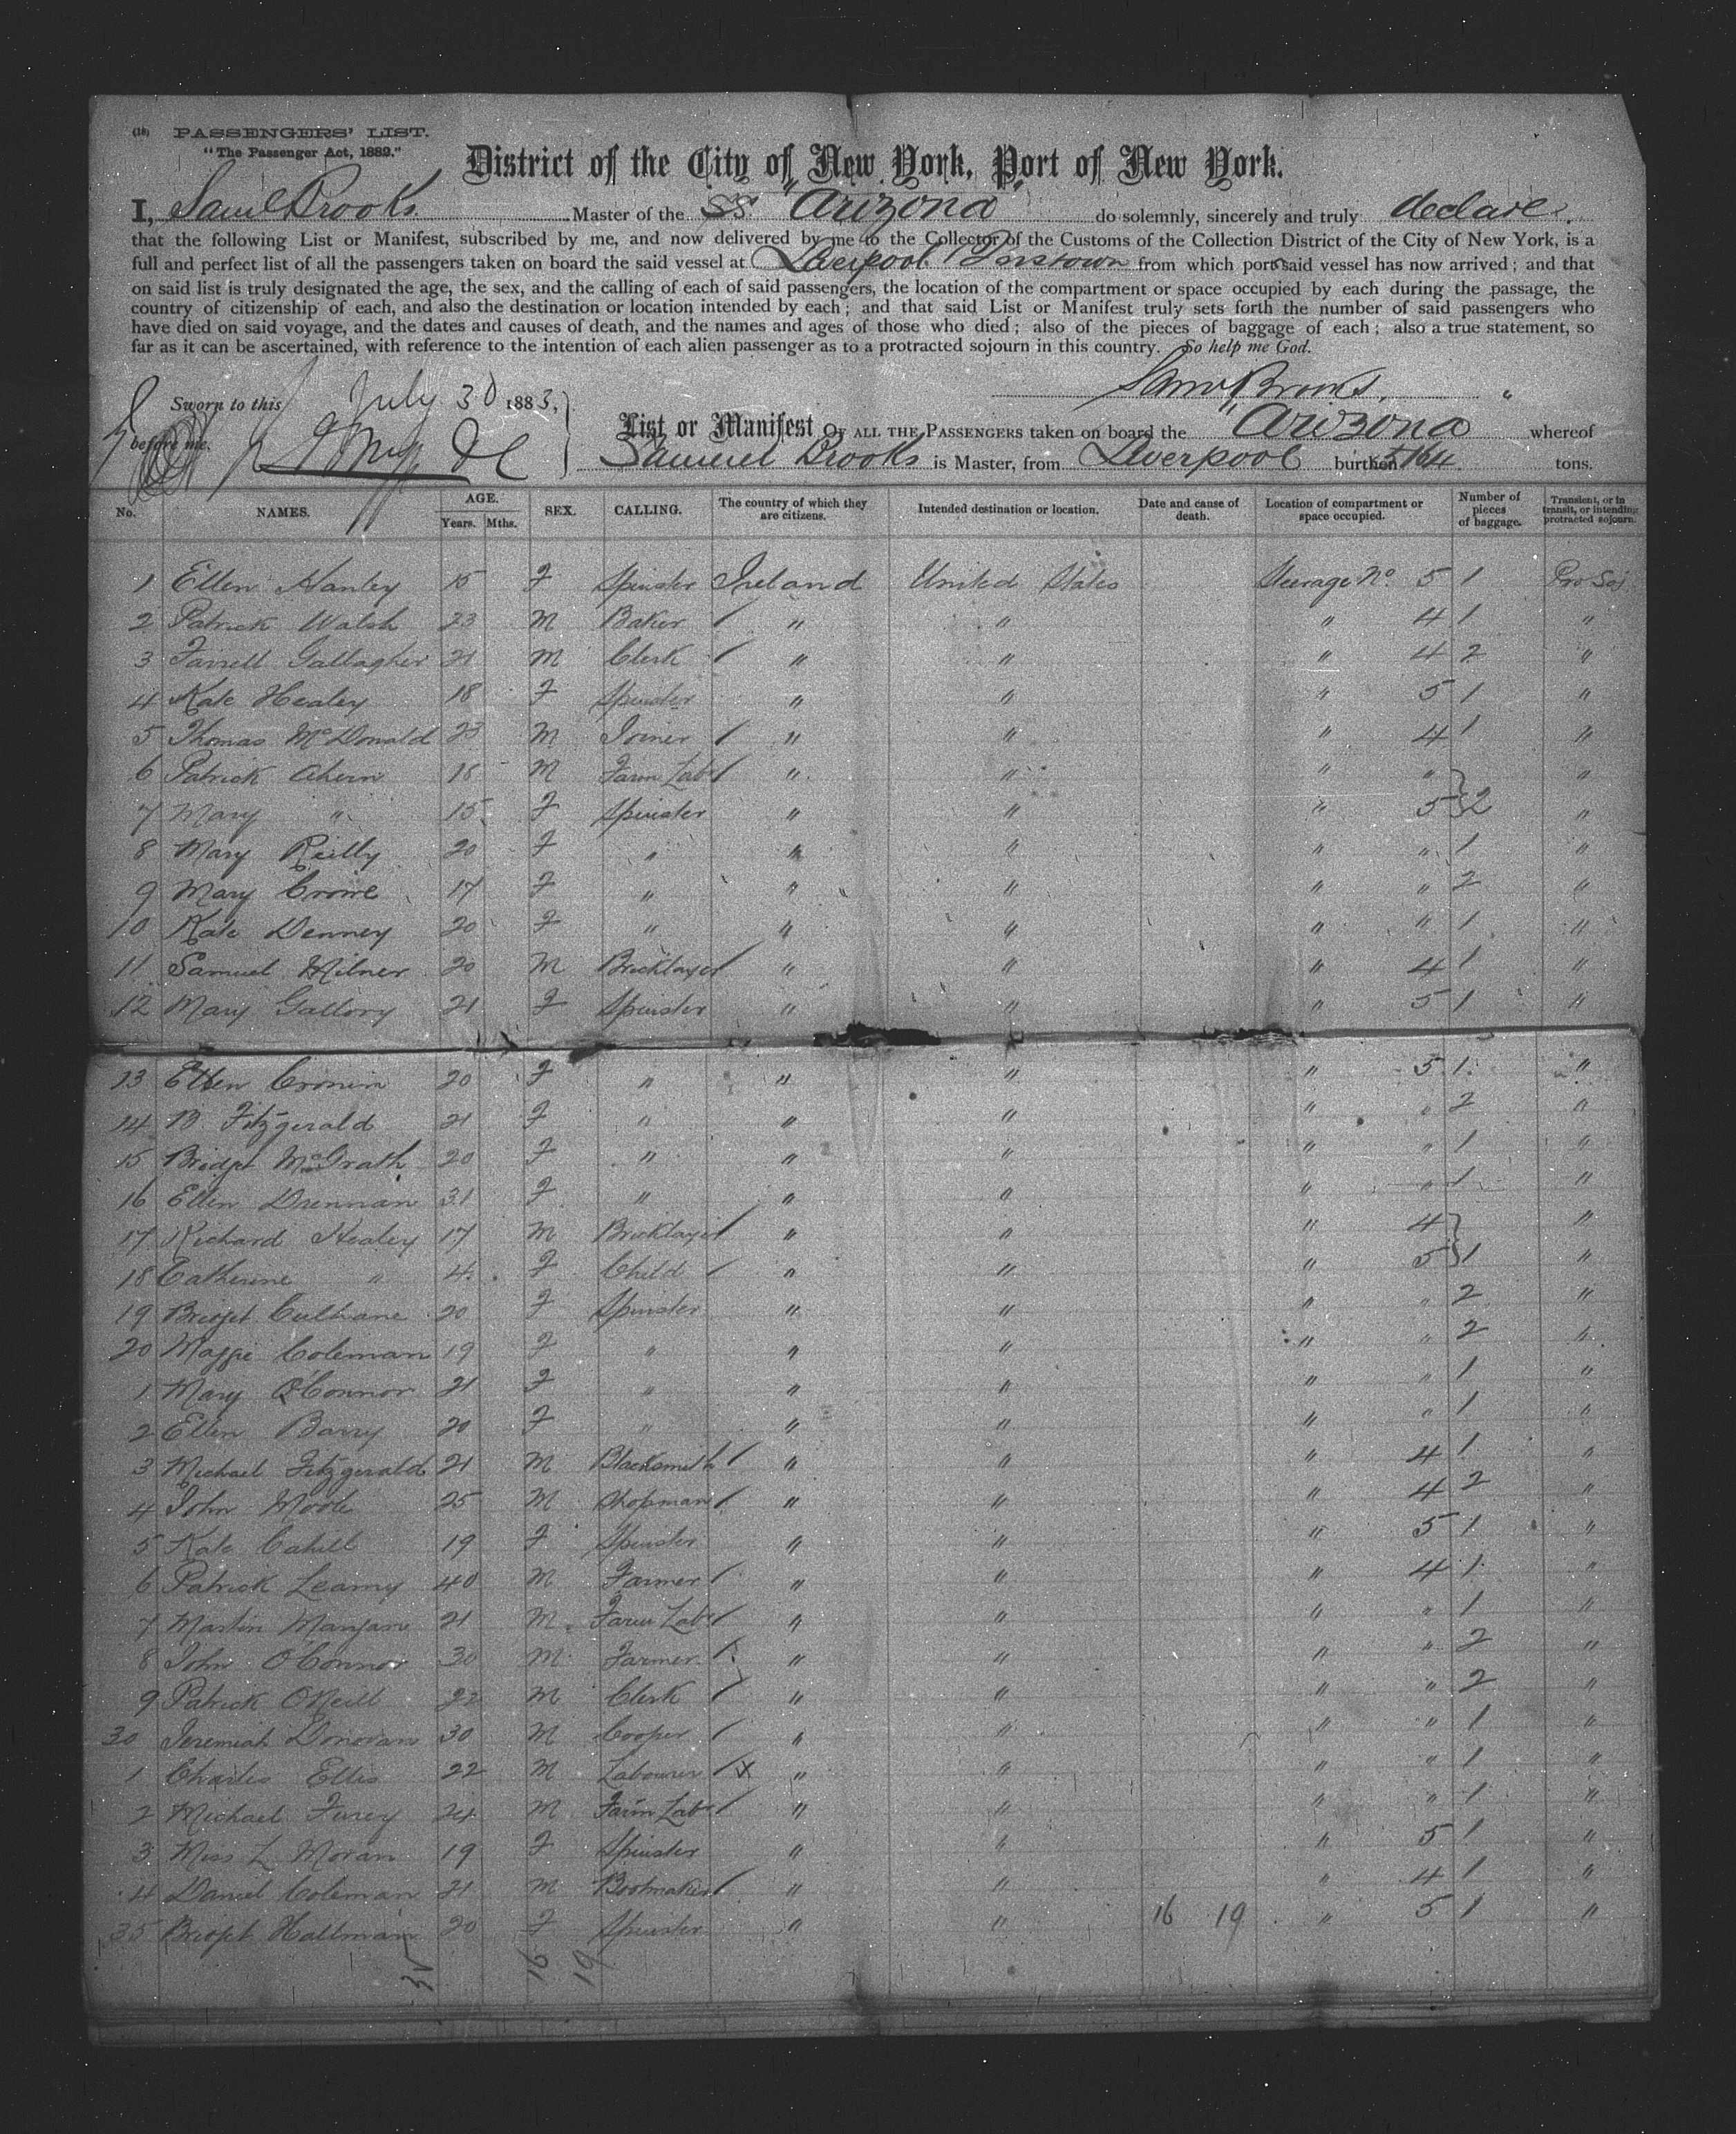 (18) PASSENGERS' LIST.
"The Passenger Act, 1882."
District of the City of New York, Port of New York.
I, Saml Brooks Master of the SS "Arizona" do solemnly, sincerely and truly declare
that the following List or Manifest, subscribed by me, and now delivered by me to the Collector of the Customs of the Collection District of the City of New York, is a
full and perfect list of all the passengers taken on board the said vessel at Liverpool Qnstown from which ports said vessel has now arrived; and that
on said list is truly designated the age, the sex, and the calling of each of said passengers, the location of the compartment or space occupied by each during the passage, the
country of citizenship of each, and also the destination or location intended by each; and that said List or Manifest truly sets forth the number of said passengers who
have died on said voyage, and the dates and causes of death, and the names and ages of those who died; also of the pieces of baggage of each; also a true statement, so
far as it can be ascertained, with reference to the intention of each alien passenger as to a protracted sojourn in this country. So help me God.
Sworn to this July 30 1883, Saml Brooks.
before me.
List or Manifest OF ALL THE PASSENGERS taken on board the "Arizona whereof
Samuel Brooks is Master, from Liverpool burthen 5164 tons.
No. NAMES. AGE. Years. Mths. SEX. CALLING. The country of which they are citizens. Intended destination or location. Date and cause of death. Location of compartment or space occupied. Number of pieces of baggage. Transient, or in transit, or intending protracted sojourn.
1 Ellen Hanley 15 F Spinster Ireland United States Steerage No. 5 1 Pro Soj
2 Patrick Walsh 23 M Baker / " " " 4 1 "
3 Farrell Gallagher 21 M Clerk / " " " 4 2 "
4 Kate Healey 18 F Spinster " " " 5 1 "
5 Thomas McDonald 23 M Joiner / " " " 4 1 "
6 Patrick Ahern 18 M Farm Labr / " " " " "
7 Mary " 15 F Spinster " " " 5 } 2 "
8 Mary Reilly 20 F " " " " " 1 "
9 Mary Crowe 17 F " " " " " 2 "
10 Kate Denney 20 F " " " " " 1 "
11 Samuel Milner 20 M Bricklayer / " " " 4 1 "
12 Mary Gallory 21 F Spinster " " " 5 1 "
13 Ellen Cronin 20 F " " " " 5 1 "
14 B. Fitzgerald 21 F " " " " " 2 "
15 Bridget McGrath 20 F " " " " " 1 "
16 Ellen Drennan 31 F " " " " " 1 "
17 Richard Healey 17 M Bricklayer / " " " 4 "
18 Catherine " 4 F Child / " " " 5 } 1 "
19 Bridget Culhane 20 F Spinster " " " " 2 "
20 Maggie Coleman 19 F " " " " " 2 "
1 Mary O'Connor 21 F " " " " " 1 "
2 Ellen Barry 20 F " " " " " 1 "
3 Michael Fitzgerald 21 M Blacksmith / " " " 4 1 "
4 John Moore 25 M Shopman / " " " 4 2 "
5 Kate Cahill 19 F Spinster " " " 5 1 "
6 Patrick Leamy 40 M Farmer / " " " 4 1 "
7 Martin Mangan 21 M Farm Labr / " " " " 1 "
8 John O'Connor 30 M Farmer / " " " " 2 "
9 Patrick O'Neill 22 M Clerk / " " " " 2 "
30 Jeremiah Donovan 30 M Cooper / " " " " 1 "
1 Charles Ellis 22 M Labourer / X " " " " 1 "
2 Michael Furey 24 M Farm Labr / " " " " 1 "
3 Miss L Moran 19 F Spinster " " " 5 1 "
4 Daniel Coleman 21 M Bootmaker / " " " 4 1 "
35 Bridget Hallman 20 F Spinster " " 16 19 " 5 1 "
35 16 19